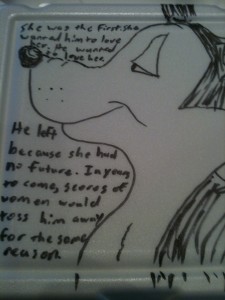 She was the first. She
wanted him to love
her. He wanted
to love her.
He left
because she had
no future. In years
to come, scores of
women would
toss him away
for the same
reason